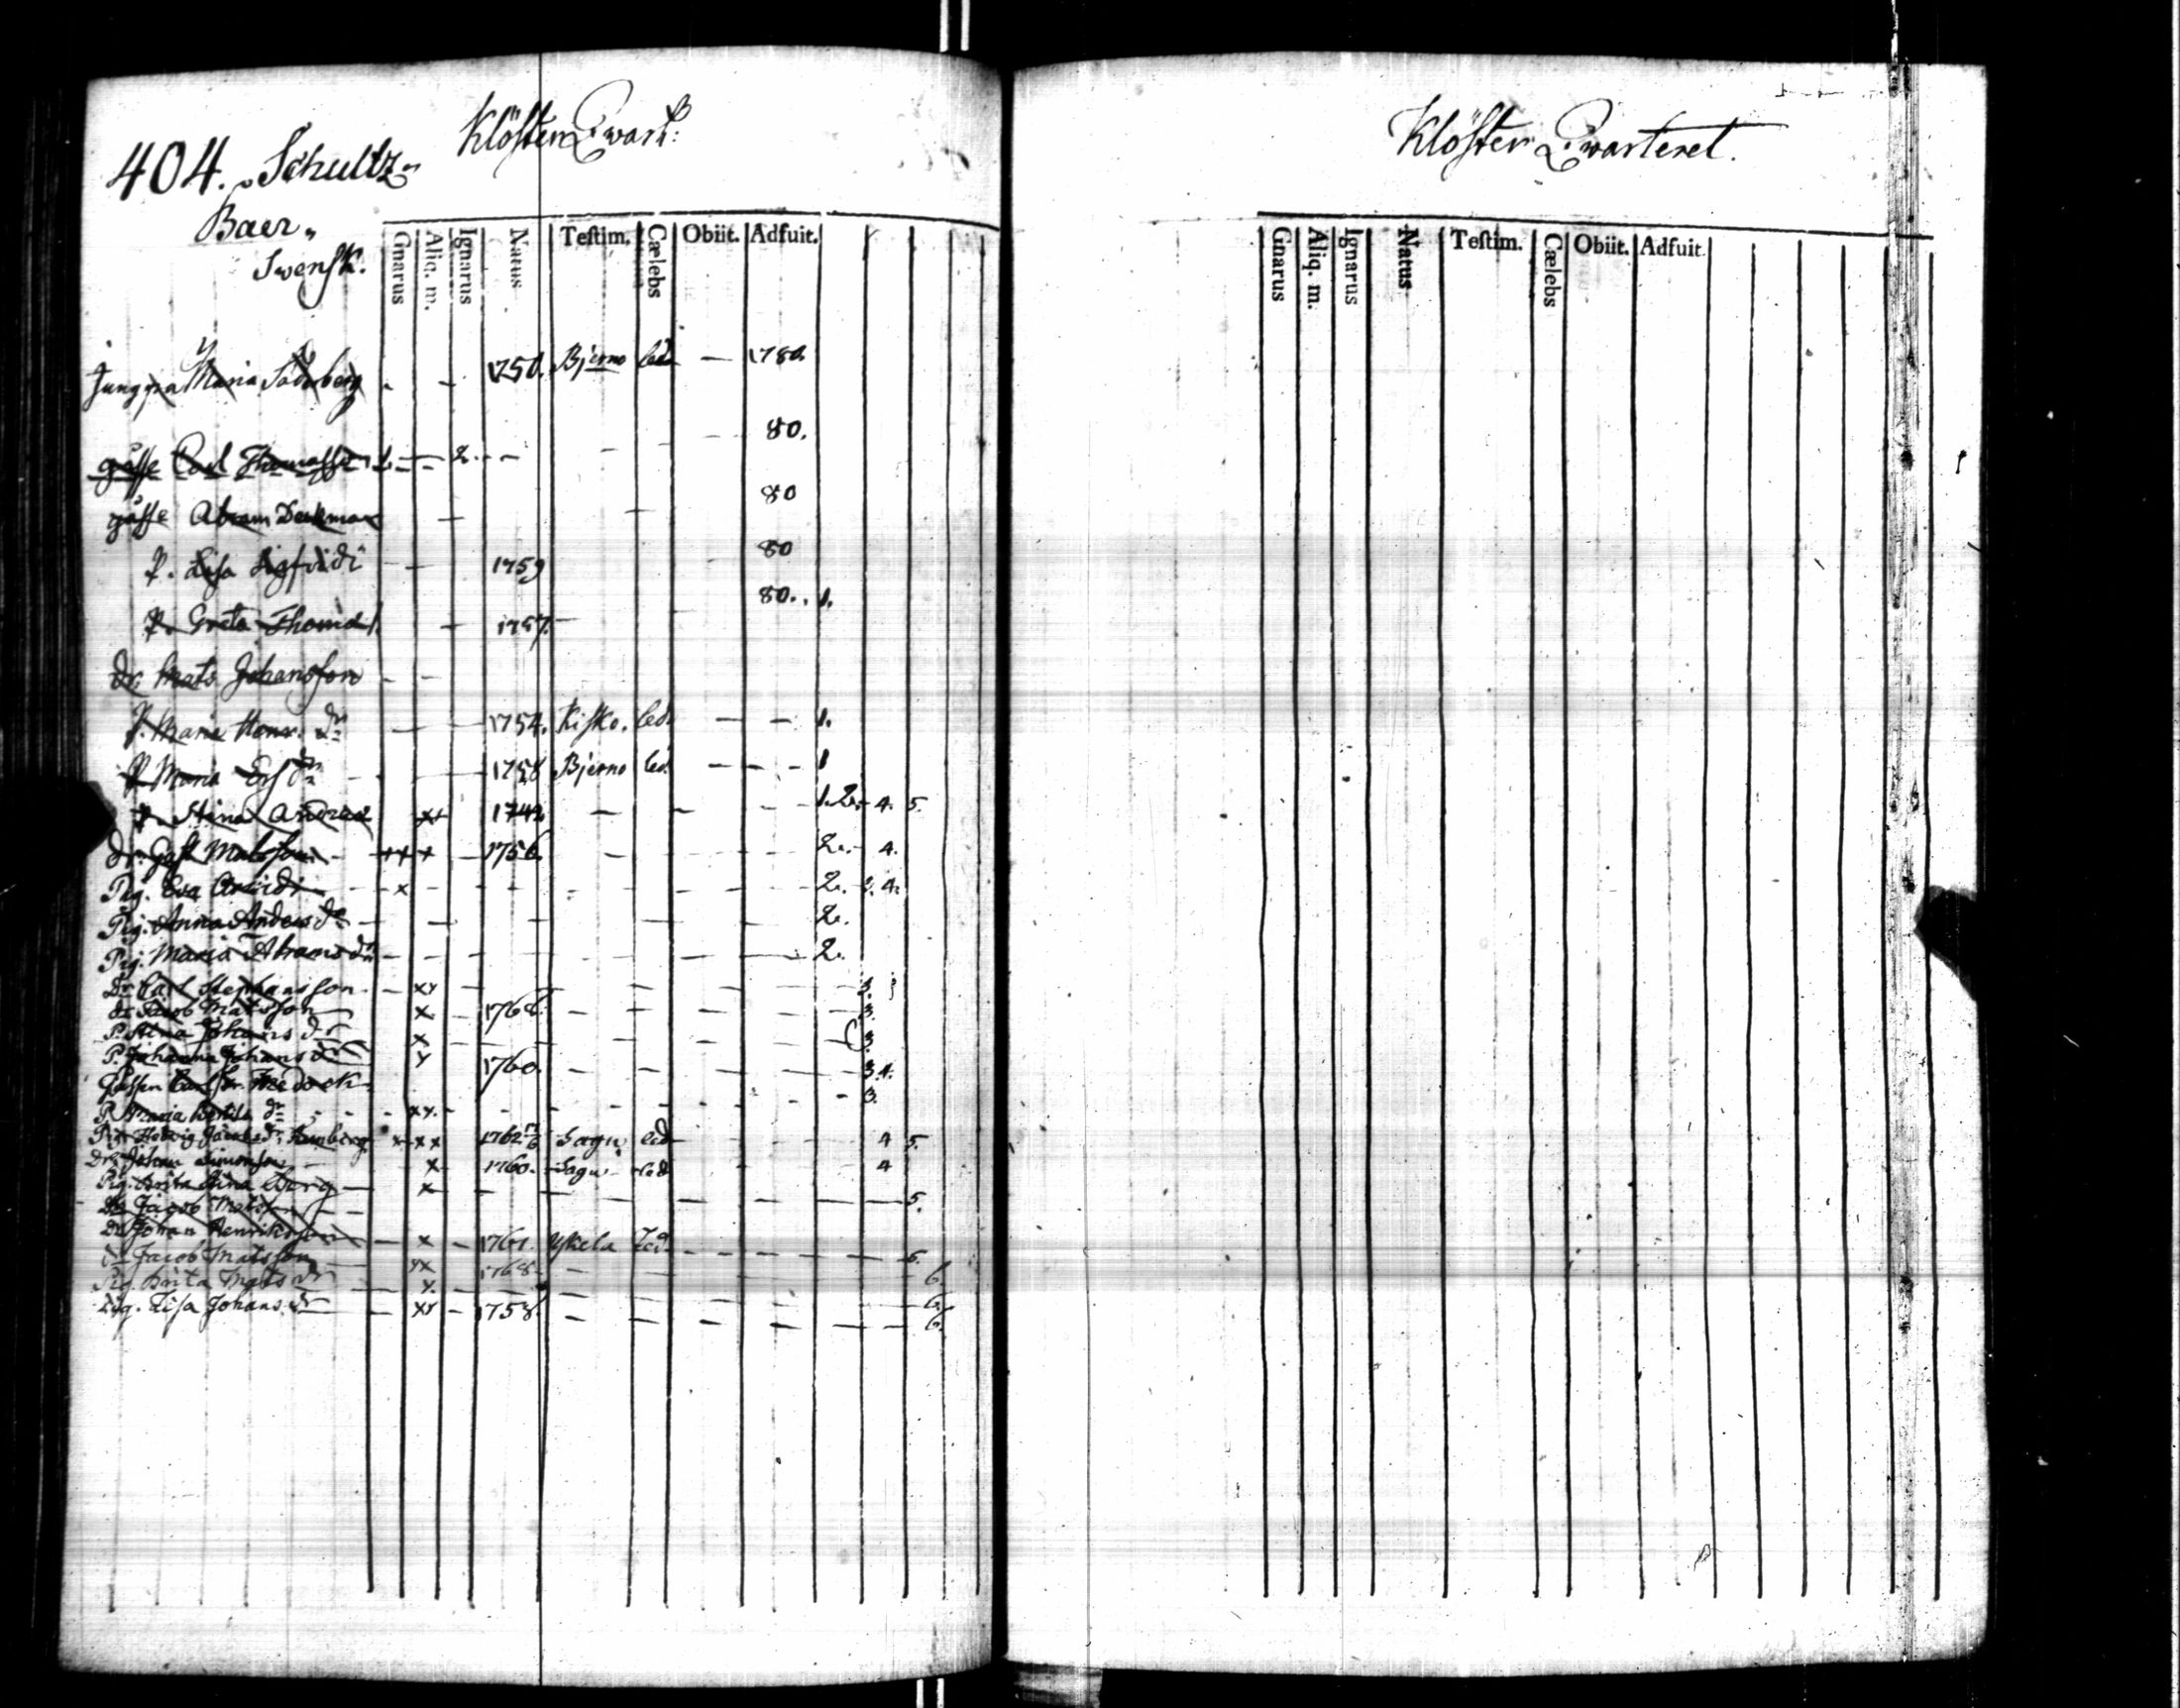 Klöster Qvart:
404. Schultz
Baer
Swensk.
Gnarus Aliq. m. Ignarus Natus Testim. Cælebs Obiit. Adfuit.
Jungfru Maria Söderberg 1750. Bjerno led. 1780.
gosse Carl Thomasson 80.
gosse Abram 80
P. Lisa Sigfridi 1759 80
P. Greta Thomæ 1757. 80. 1.
dr. Mats Johansson
P. Maria Henr. dr 1754. Kisko. led. 1.
P. Maria Ers dr 1758 Bjerno led. 1
P. Stina Andreæ xx 1742 1. 2. 4. 5.
dr. Gust. Matsson xxx 1756. 2. 4.
Pig. Eva Arvidi x 2. 4.
Pig. Anna Anders dr 2.
Pig. Maria Abrams dr 2.
Dr Carl Stephansson xx 3.
dr Jacob Matsson x 1768. 3.
P. Stina Johans dr x 3
P. Johanna Johans dr x 1760. 3. 4.
Gossen Carl Fr. 3.
P. Maria dr xx.
Pig. Hedvig Jacobs dr xxx 1762 Sagu led 4 5.
Dr. Johan Simonson x 1760. Sagu led 4
Pig. Brita Stina Berg x 5.
Dr Jacob Mats
Dr Johan Henriksson x 1761. Yskela led. 5.
dr Jacob Matsson xx 1768. 6.
Pig. Brita Mats dr x. 6.
Pig. Lisa Johans. dr xx 1758. 6.
Klöster Qvarteret.
Gnarus Aliq. m. Ignarus Natus Testim. Cælebs Obiit. Adfuit.